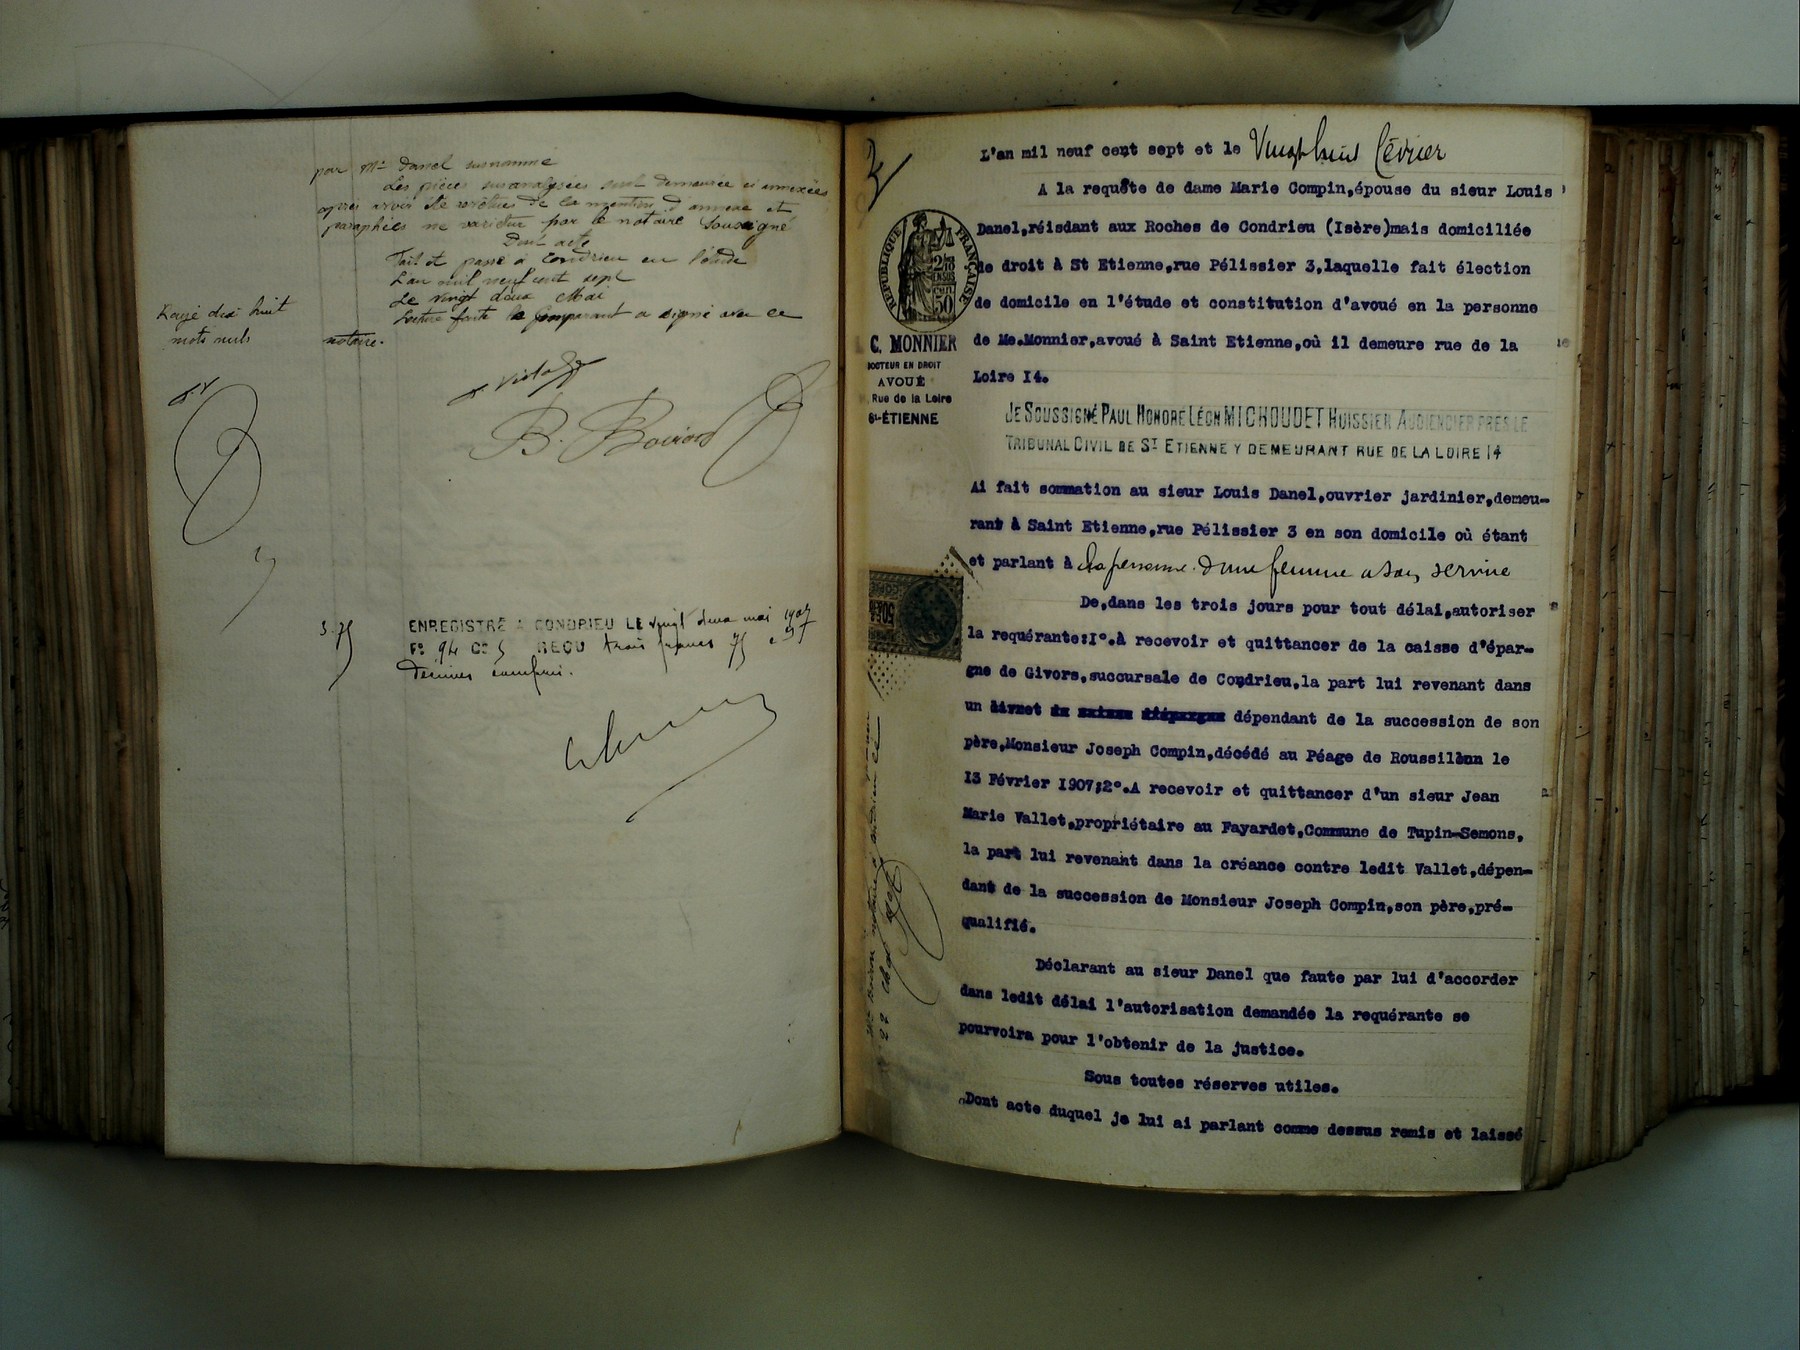 par Mme Danel susnommée
Les pièces susanalysées sont demeurées ci annexées
après avoir été revêtues de la mention d'annexe et
paraphées ne varietur par le notaire soussigné
Dont acte
Fait et passé à Condrieu en l'étude
L'an mil neuf cent sept
Le vingt deux Mai
Lecture faite le comparant a signé avec le
notaire.
Rayé dix huit
mots nuls
B. Boiron
3.75
ENREGISTRÉ A CONDRIEU LE vingt deux mai 1907
Fo 94 Co 5 REÇU trois francs 75 c
Décimes compris.
2
L'an mil neuf cent sept et le Vingt huit Février
A la requête de dame Marie Compin,épouse du sieur Louis
Danel,réisdant aux Roches de Condrieu (Isère)mais domiciliée
de droit à St Etienne,rue Pélissier 3,laquelle fait élection
de domicile en l'étude et constitution d'avoué en la personne
de Me.Monnier,avoué à Saint Etienne,où il demeure rue de la
Loire I4.
RÉPUBLIQUE FRANÇAISE
50
C. MONNIER
DOCTEUR EN DROIT
AVOUÉ
Rue de la Loire
St-ÉTIENNE
JE SOUSSIGNÉ PAUL HONORÉ LÉON MICHOUDET HUISSIER AUDIENCIER PRES LE
TRIBUNAL CIVIL DE ST ETIENNE Y DEMEURANT RUE DE LA LOIRE 14
Ai fait sommation au sieur Louis Danel,ouvrier jardinier,demeu-
rant à Saint Etienne,rue Pélissier 3 en son domicile où étant
et parlant à la personne d'une femme a son service
De,dans les trois jours pour tout délai,autoriser
la requérante:I°.à recevoir et quittancer de la caisse d'épar-
gne de Givors,succursale de Condrieu,la part lui revenant dans
un livret de caisse d'épargne dépendant de la succession de son
père,Monsieur Joseph Compin,décédé au Péage de Roussillon le
I3 Février I907;2°.A recevoir et quittancer d'un sieur Jean
Marie Vallet,propriétaire au Fayardet,Commune de Tupin-Semons,
la part lui revenant dans la créance contre ledit Vallet,dépen-
dant de la succession de Monsieur Joseph Compin,son père,pré-
qualifié.
Déclarant au sieur Danel que faute par lui d'accorder
dans ledit délai l'autorisation demandée la requérante se
pourvoira pour l'obtenir de la justice.
Sous toutes réserves utiles.
Dont acte duquel je lui ai parlant comme dessus remis et laissé